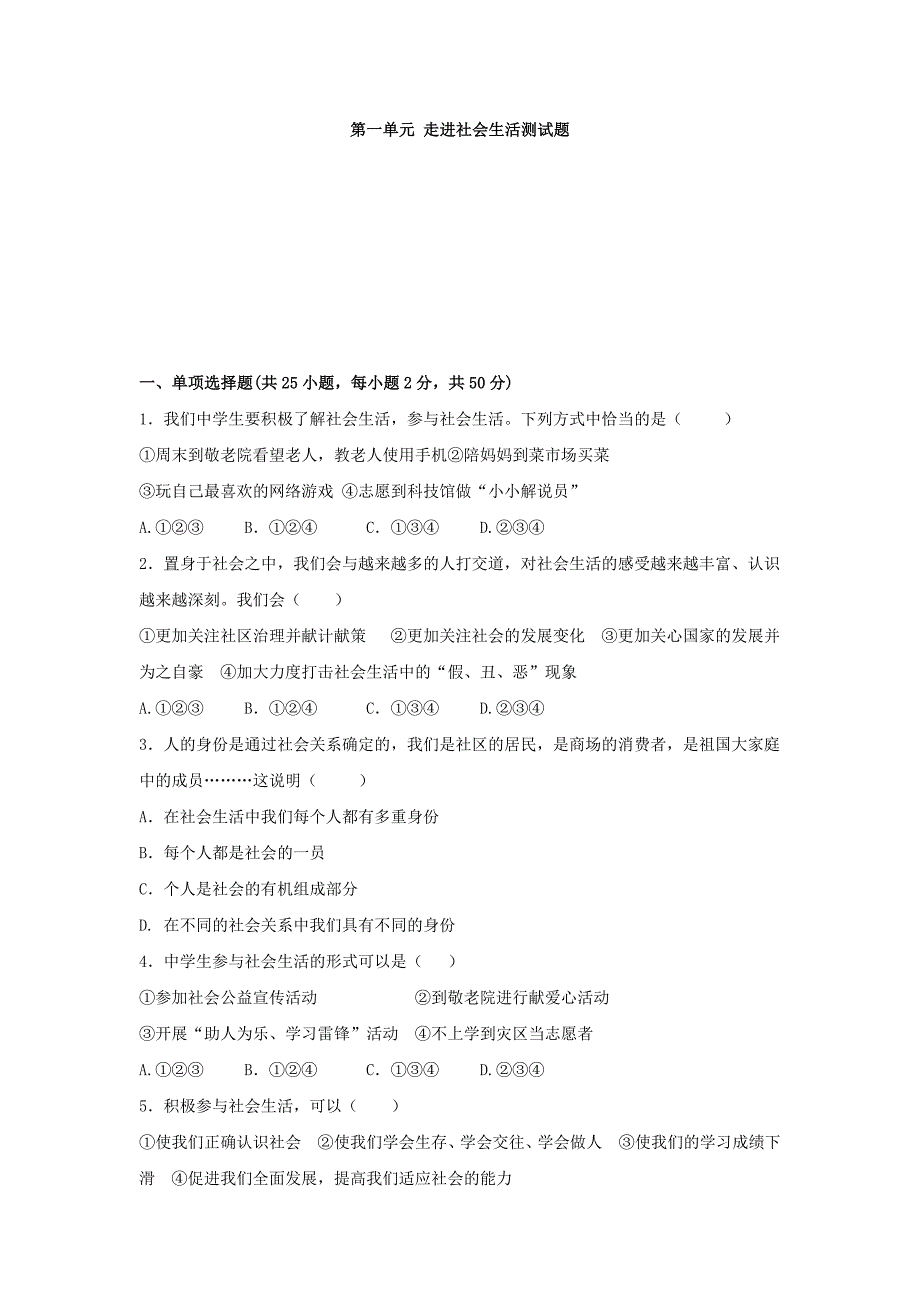 第一单元 走进社会生活测试题
一、单项选择题(共25小题，每小题2分，共50分)
1．我们中学生要积极了解社会生活，参与社会生活。下列方式中恰当的是（　　）
①周末到敬老院看望老人，教老人使用手机②陪妈妈到菜市场买菜
③玩自己最喜欢的网络游戏 ④志愿到科技馆做“小小解说员”
A.①②③　　B．①②④　　C．①③④　　D.②③④
2．置身于社会之中，我们会与越来越多的人打交道，对社会生活的感受越来越丰富、认识
越来越深刻。我们会（　　）
①更加关注社区治理并献计献策　②更加关注社会的发展变化　③更加关心国家的发展并
为之自豪　④加大力度打击社会生活中的“假、丑、恶”现象
A.①②③　　B．①②④　　C．①③④　　D.②③④
3．人的身份是通过社会关系确定的，我们是社区的居民，是商场的消费者，是祖国大家庭
中的成员………这说明（　　）
A．在社会生活中我们每个人都有多重身份
B．每个人都是社会的一员
C．个人是社会的有机组成部分
D. 在不同的社会关系中我们具有不同的身份
4．中学生参与社会生活的形式可以是（　　）
①参加社会公益宣传活动　　　　　　②到敬老院进行献爱心活动
③开展“助人为乐、学习雷锋”活动　④不上学到灾区当志愿者
A.①②③　　B．①②④　　C．①③④　　D.②③④
5．积极参与社会生活，可以（　　）
①使我们正确认识社会　②使我们学会生存、学会交往、学会做人　③使我们的学习成绩下
滑　④促进我们全面发展，提高我们适应社会的能力